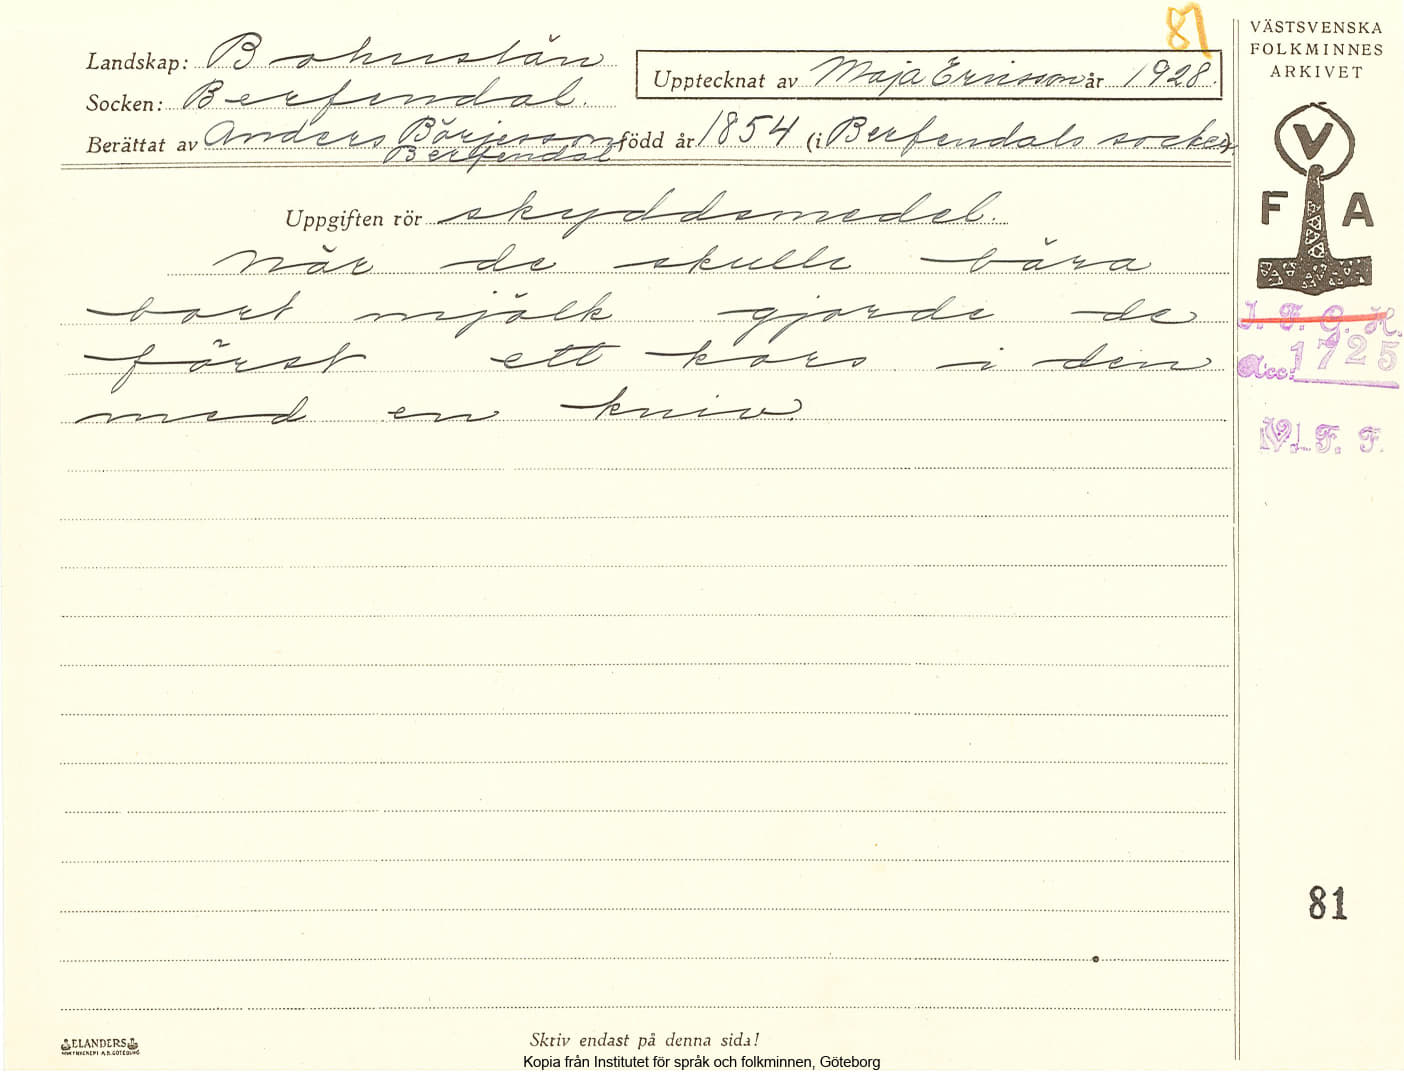 81
VÄSTSVENSKA
FOLKMINNES
ARKIVET
Landskap: Bohuslän
Upptecknat av Maja Ericsson år 1928.
Socken: Berfendal.
Berättat av Anders Börjesson född år 1854 (i Berfendals socken).
Berfendal
V
F A
Uppgiften rör skyddsmedel.
När de skulle bära
bort mjölk gjorde de
först ett kors i den
med en kniv.
I. F. G. H.
Acc: 1725
V. F. F.
81
ELANDERS
BOKTRYCKERI A.B. GÖTEBORG
Skriv endast på denna sida!
Kopia från Institutet för språk och folkminnen, Göteborg